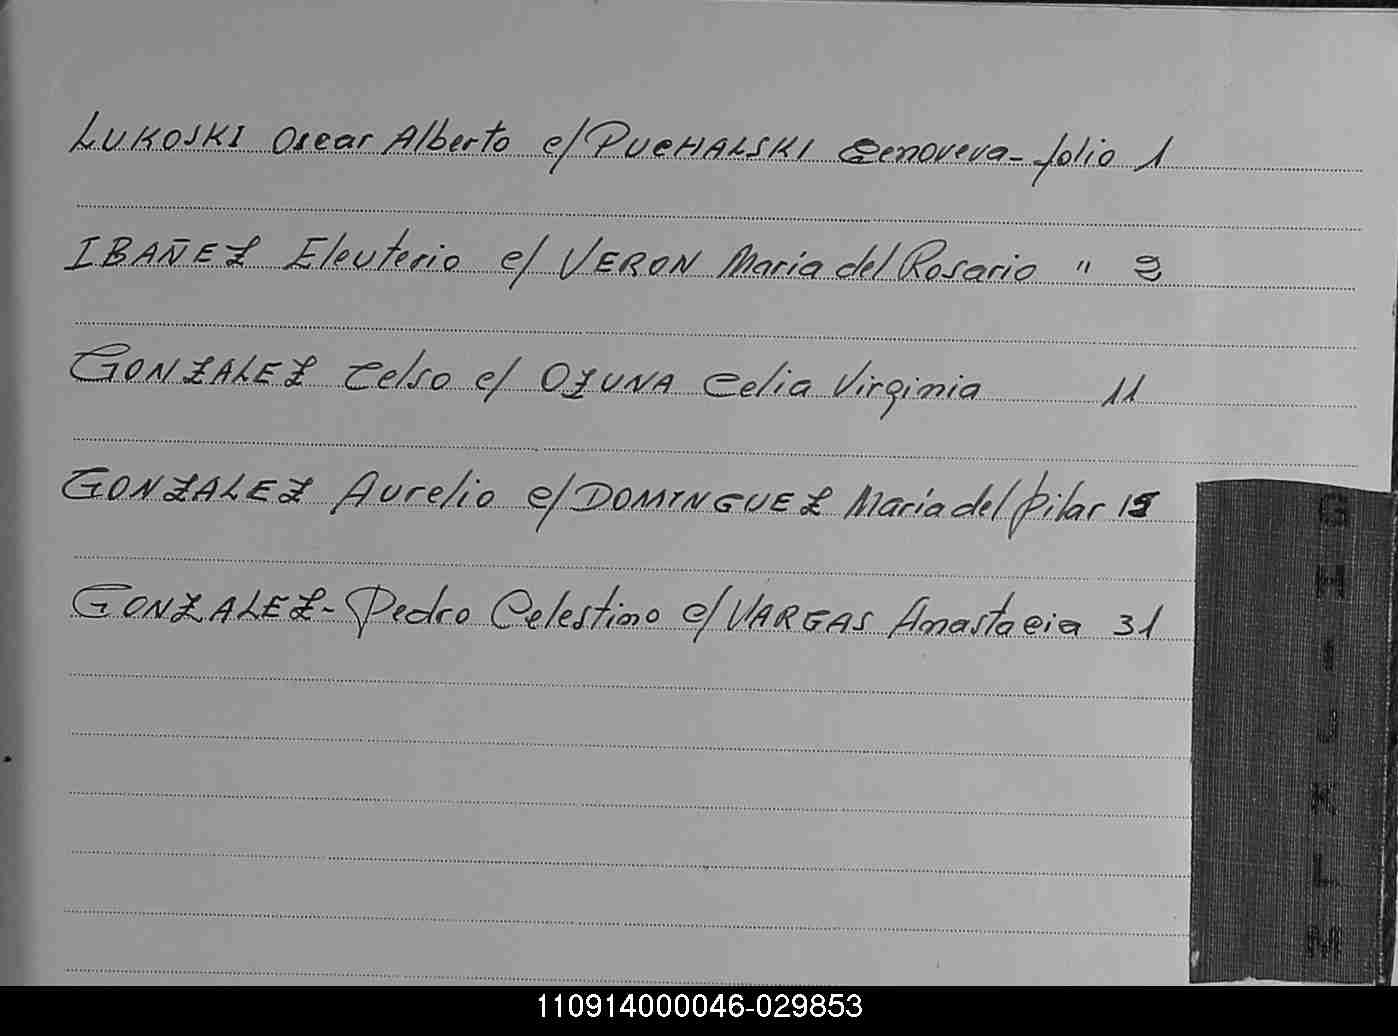 LUKOSKI Oscar Alberto c/ PUCHALSKI Genoveva - folio 1
IBAÑEZ Eleuterio c/ VERON Maria del Rosario " 9
GONZALEZ Celso c/ OZUNA Celia Virginia 11
GONZALEZ Aurelio c/ DOMINGUEZ María del Pilar
GONZALEZ - Pedro Celestino c/ VARGAS Anastacia 31
G
H
I
J
K
L
M
110914000046-029853